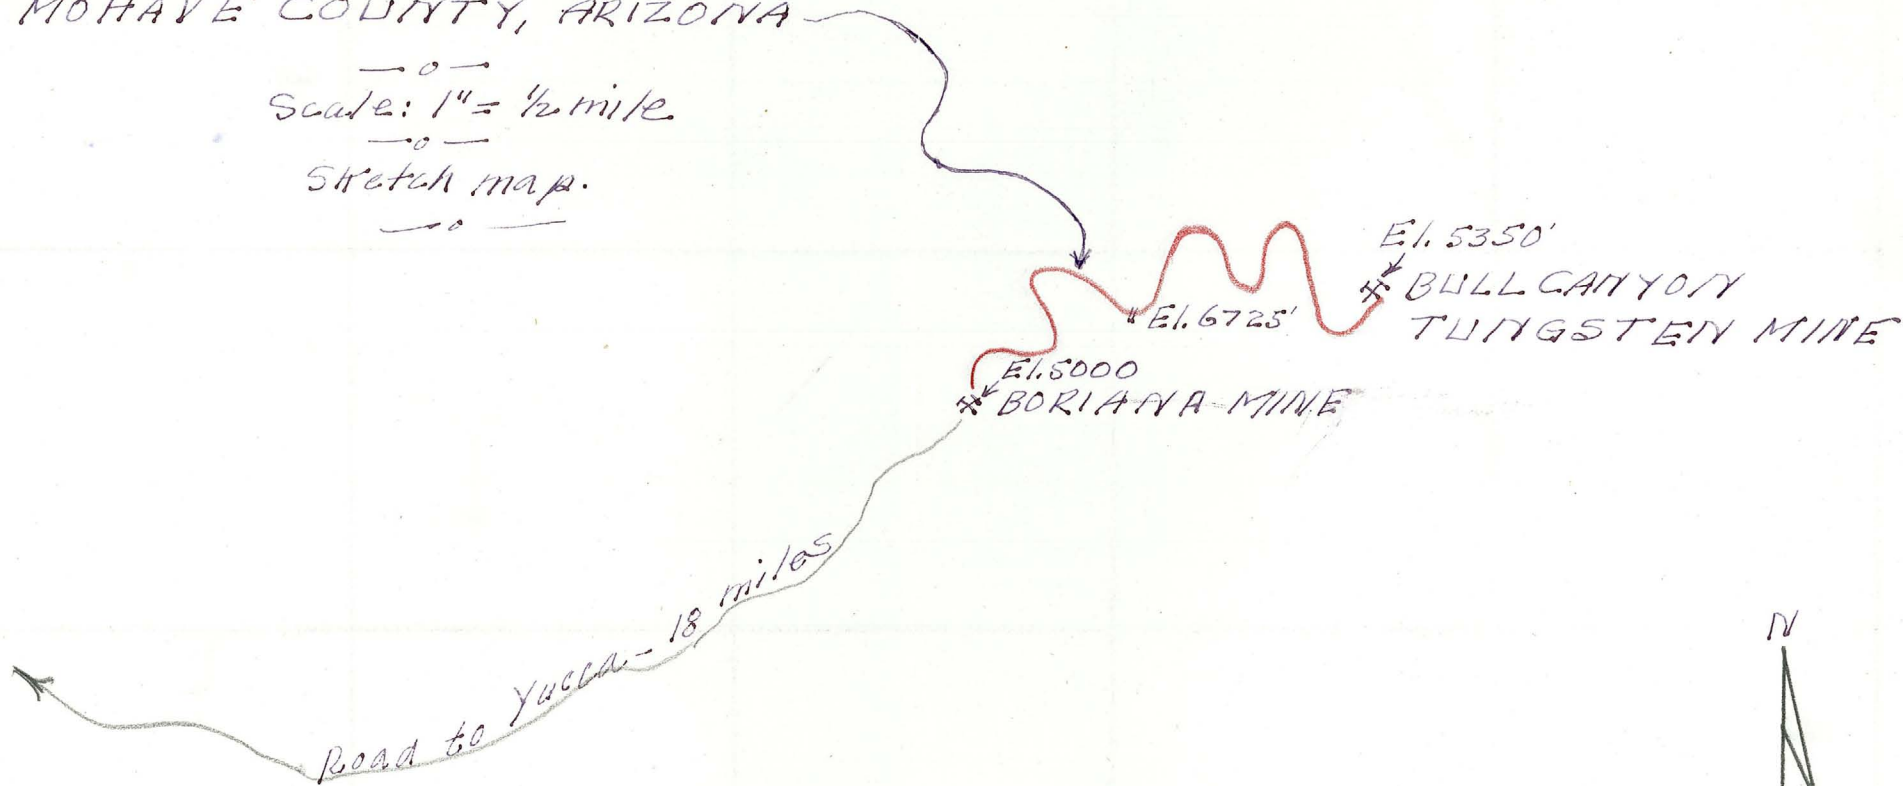 MOHAVE COUNTY, ARIZONA
Scale: 1" = 1/2 mile
Sketch map.
El. 5350'
BULL CANYON
TUNGSTEN MINE
El. 6725'
El. 5000
BORIANA MINE
Road to Yucca - 18 miles
N